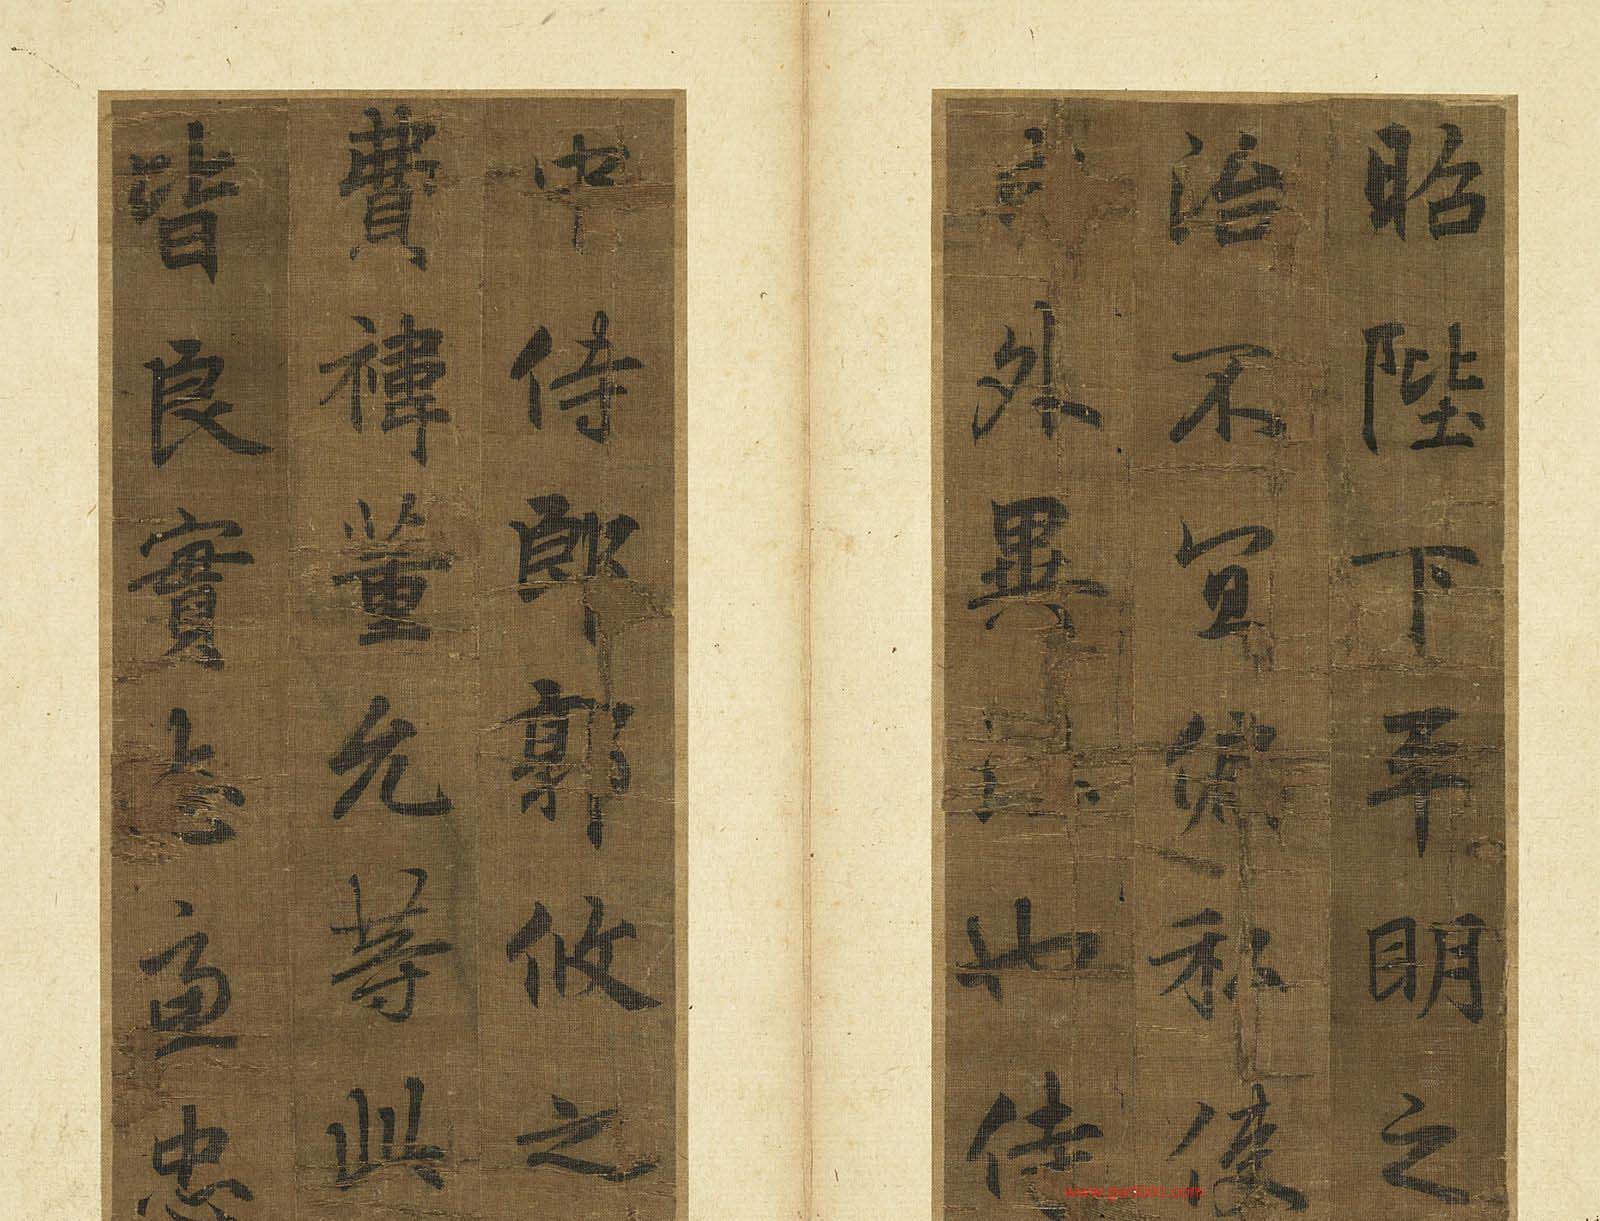 昭陛下平明之
治不宜偏私使
外異也侍
中侍郎郭攸之
費禕董允等此
皆良實慮忠